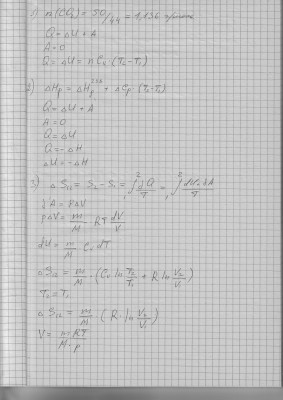 1) n(CO₂) = 50/44 = 1,136
Q = ΔU + A
A = 0
Q = ΔU = n Cv · (T₂ - T₁)
2) ΔHp = ΔHp²⁹⁸ + n Cp · (T₂ - T₁)
Q = ΔU + A
A = 0
Q = ΔU
Q = -ΔH
ΔU = -ΔH
3) ΔS₁₂ = S₂ - S₁ = ₁∫² δQ/T = ₁∫² dU+δA/T
δA = pΔV
pΔV = m/M RT dV/V
dU = m/M · Cv dT
ΔS₁₂ = m/M · (Cv ln T₂/T₁ + R ln V₂/V₁)
T₂ = T₁
ΔS₁₂ = m/M · (R · ln V₂/V₁)
V = mRT/M·p